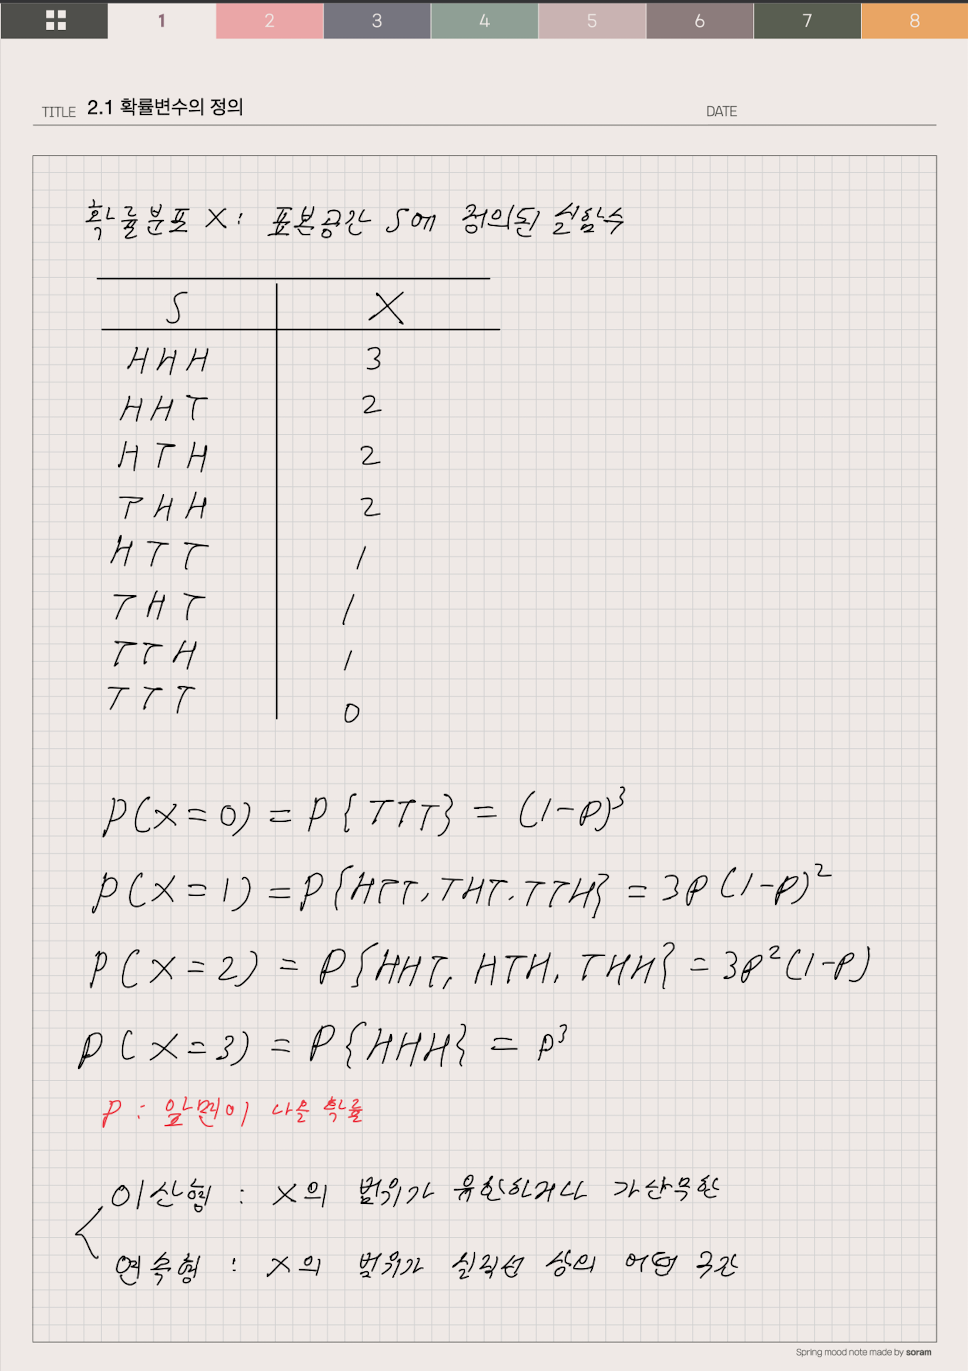 1 2 3 4 5 6 7 8
TITLE 2.1 확률변수의 정의 DATE
확률분포 X: 표본공간 S에 정의된 실함수
S X
HHH 3
HHT 2
HTH 2
THH 2
HTT 1
THT 1
TTH 1
TTT 0
P(X=0) = P{TTT} = (1-P)³
P(X=1) = P{HTT, THT. TTH} = 3P(1-P)²
P(X=2) = P{HHT, HTH, THH} = 3P²(1-P)
P(X=3) = P{HHH} = P³
P : 앞면이 나올 확률
이산형 : X의 범위가 유한하거나 가산무한
연속형 : X의 범위가 실직선 상의 어떤 구간
Spring mood note made by soram